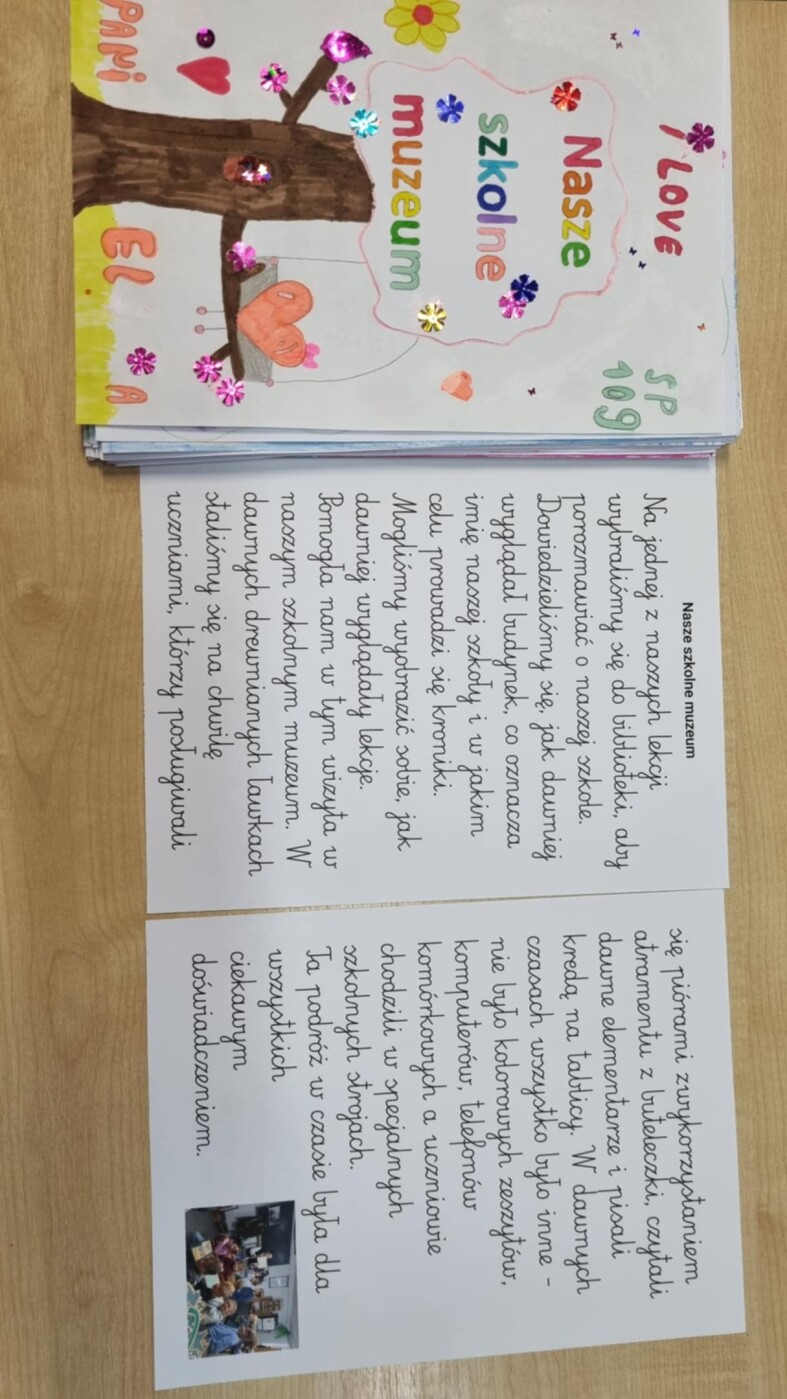 I LOVE
SP
109
Nasze
szkolne
muzeum
PANI
EL
A
Nasze szkolne muzeum
Na jednej z naszych lekcji
wybraliśmy się do biblioteki, aby
porozmawiać o naszej szkole.
Dowiedzieliśmy się, jak dawniej
wyglądał budynek, co oznacza
imię naszej szkoły i w jakim
celu prowadzi się kroniki.
Mogliśmy wyobrazić sobie, jak
dawniej wyglądały lekcje.
Pomogła nam w tym wizyta w
naszym szkolnym muzeum. W
dawnych drewnianych ławkach
staliśmy się na chwilę
uczniami, którzy posługiwali
się piórami z wykorzystaniem
atramentu z buteleczki, czytali
dawne elementarze i pisali
kredą na tablicy. W dawnych
czasach wszystko było inne -
nie było kolorowych zeszytów,
komputerów, telefonów
komórkowych a uczniowie
chodzili w specjalnych
szkolnych strojach.
Ta podróż w czasie była dla
wszystkich
ciekawym
doświadczeniem.